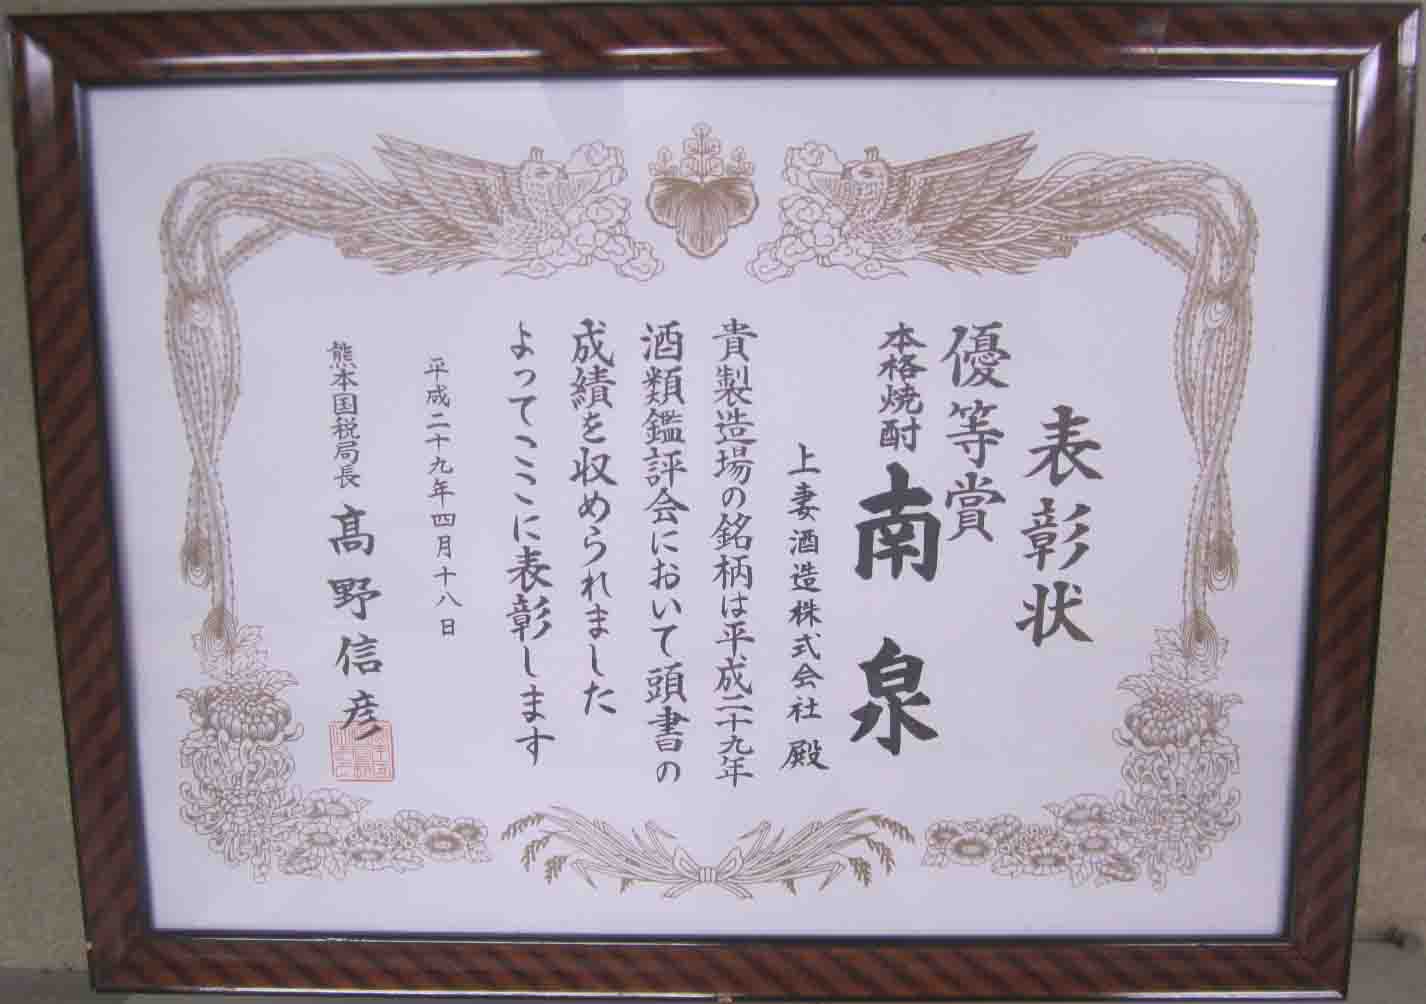 表彰状
優等賞
本格焼酎 南泉
上妻酒造株式会社 殿
貴製造場の銘柄は平成二十九年
酒類鑑評会において頭書の
成績を収められました
よってここに表彰します
平成二十九年四月十八日
熊本国税局長 髙野信彦